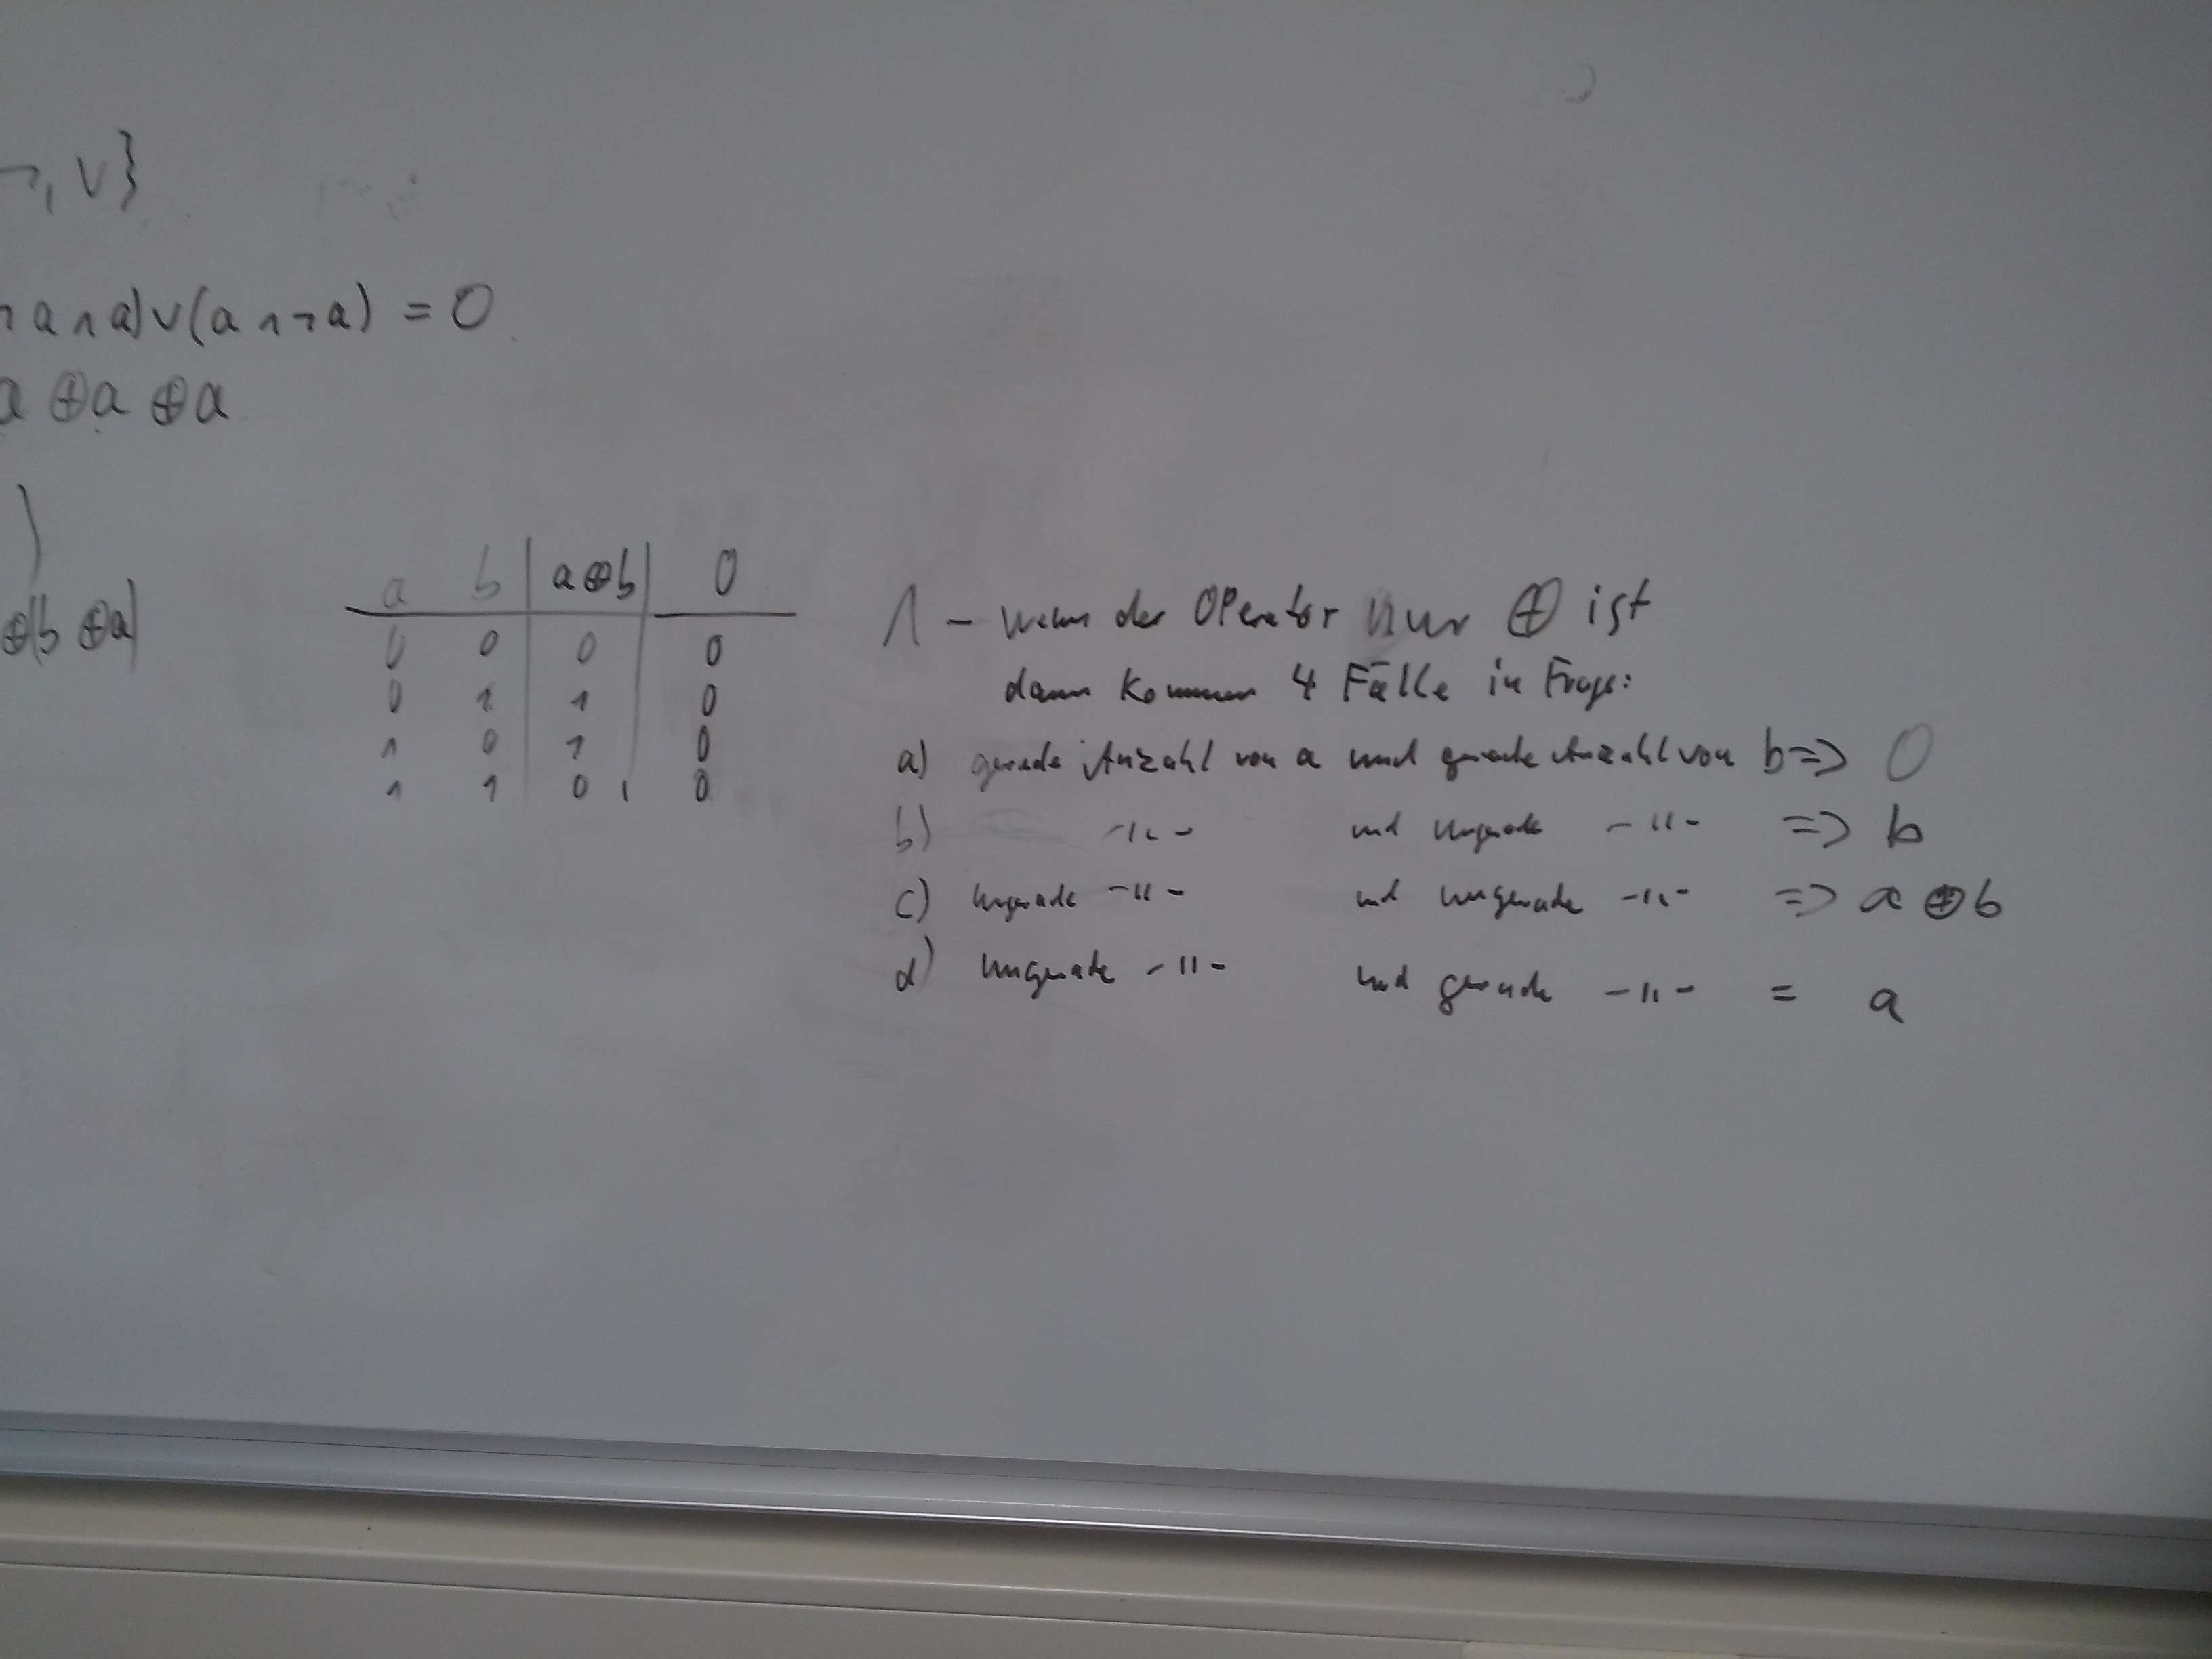 ¬, ∨}
¬a∧a)∨(a∧¬a) = 0
a ⊕a ⊕a
)
⊕(b ⊕a)
a b | a⊕b | 0
0 0 0 0
0 1 1 0
1 0 1 0
1 1 0 0
1 – Wenn der Operator nur ⊕ ist
dann kommen 4 Fälle in Frage:
a) gerade Anzahl von a und gerade Anzahl von b => 0
b) -"- und ungerade -"- => b
c) ungerade -"- und ungerade -"- => a ⊕ b
d) ungerade -"- und gerade -"- = a